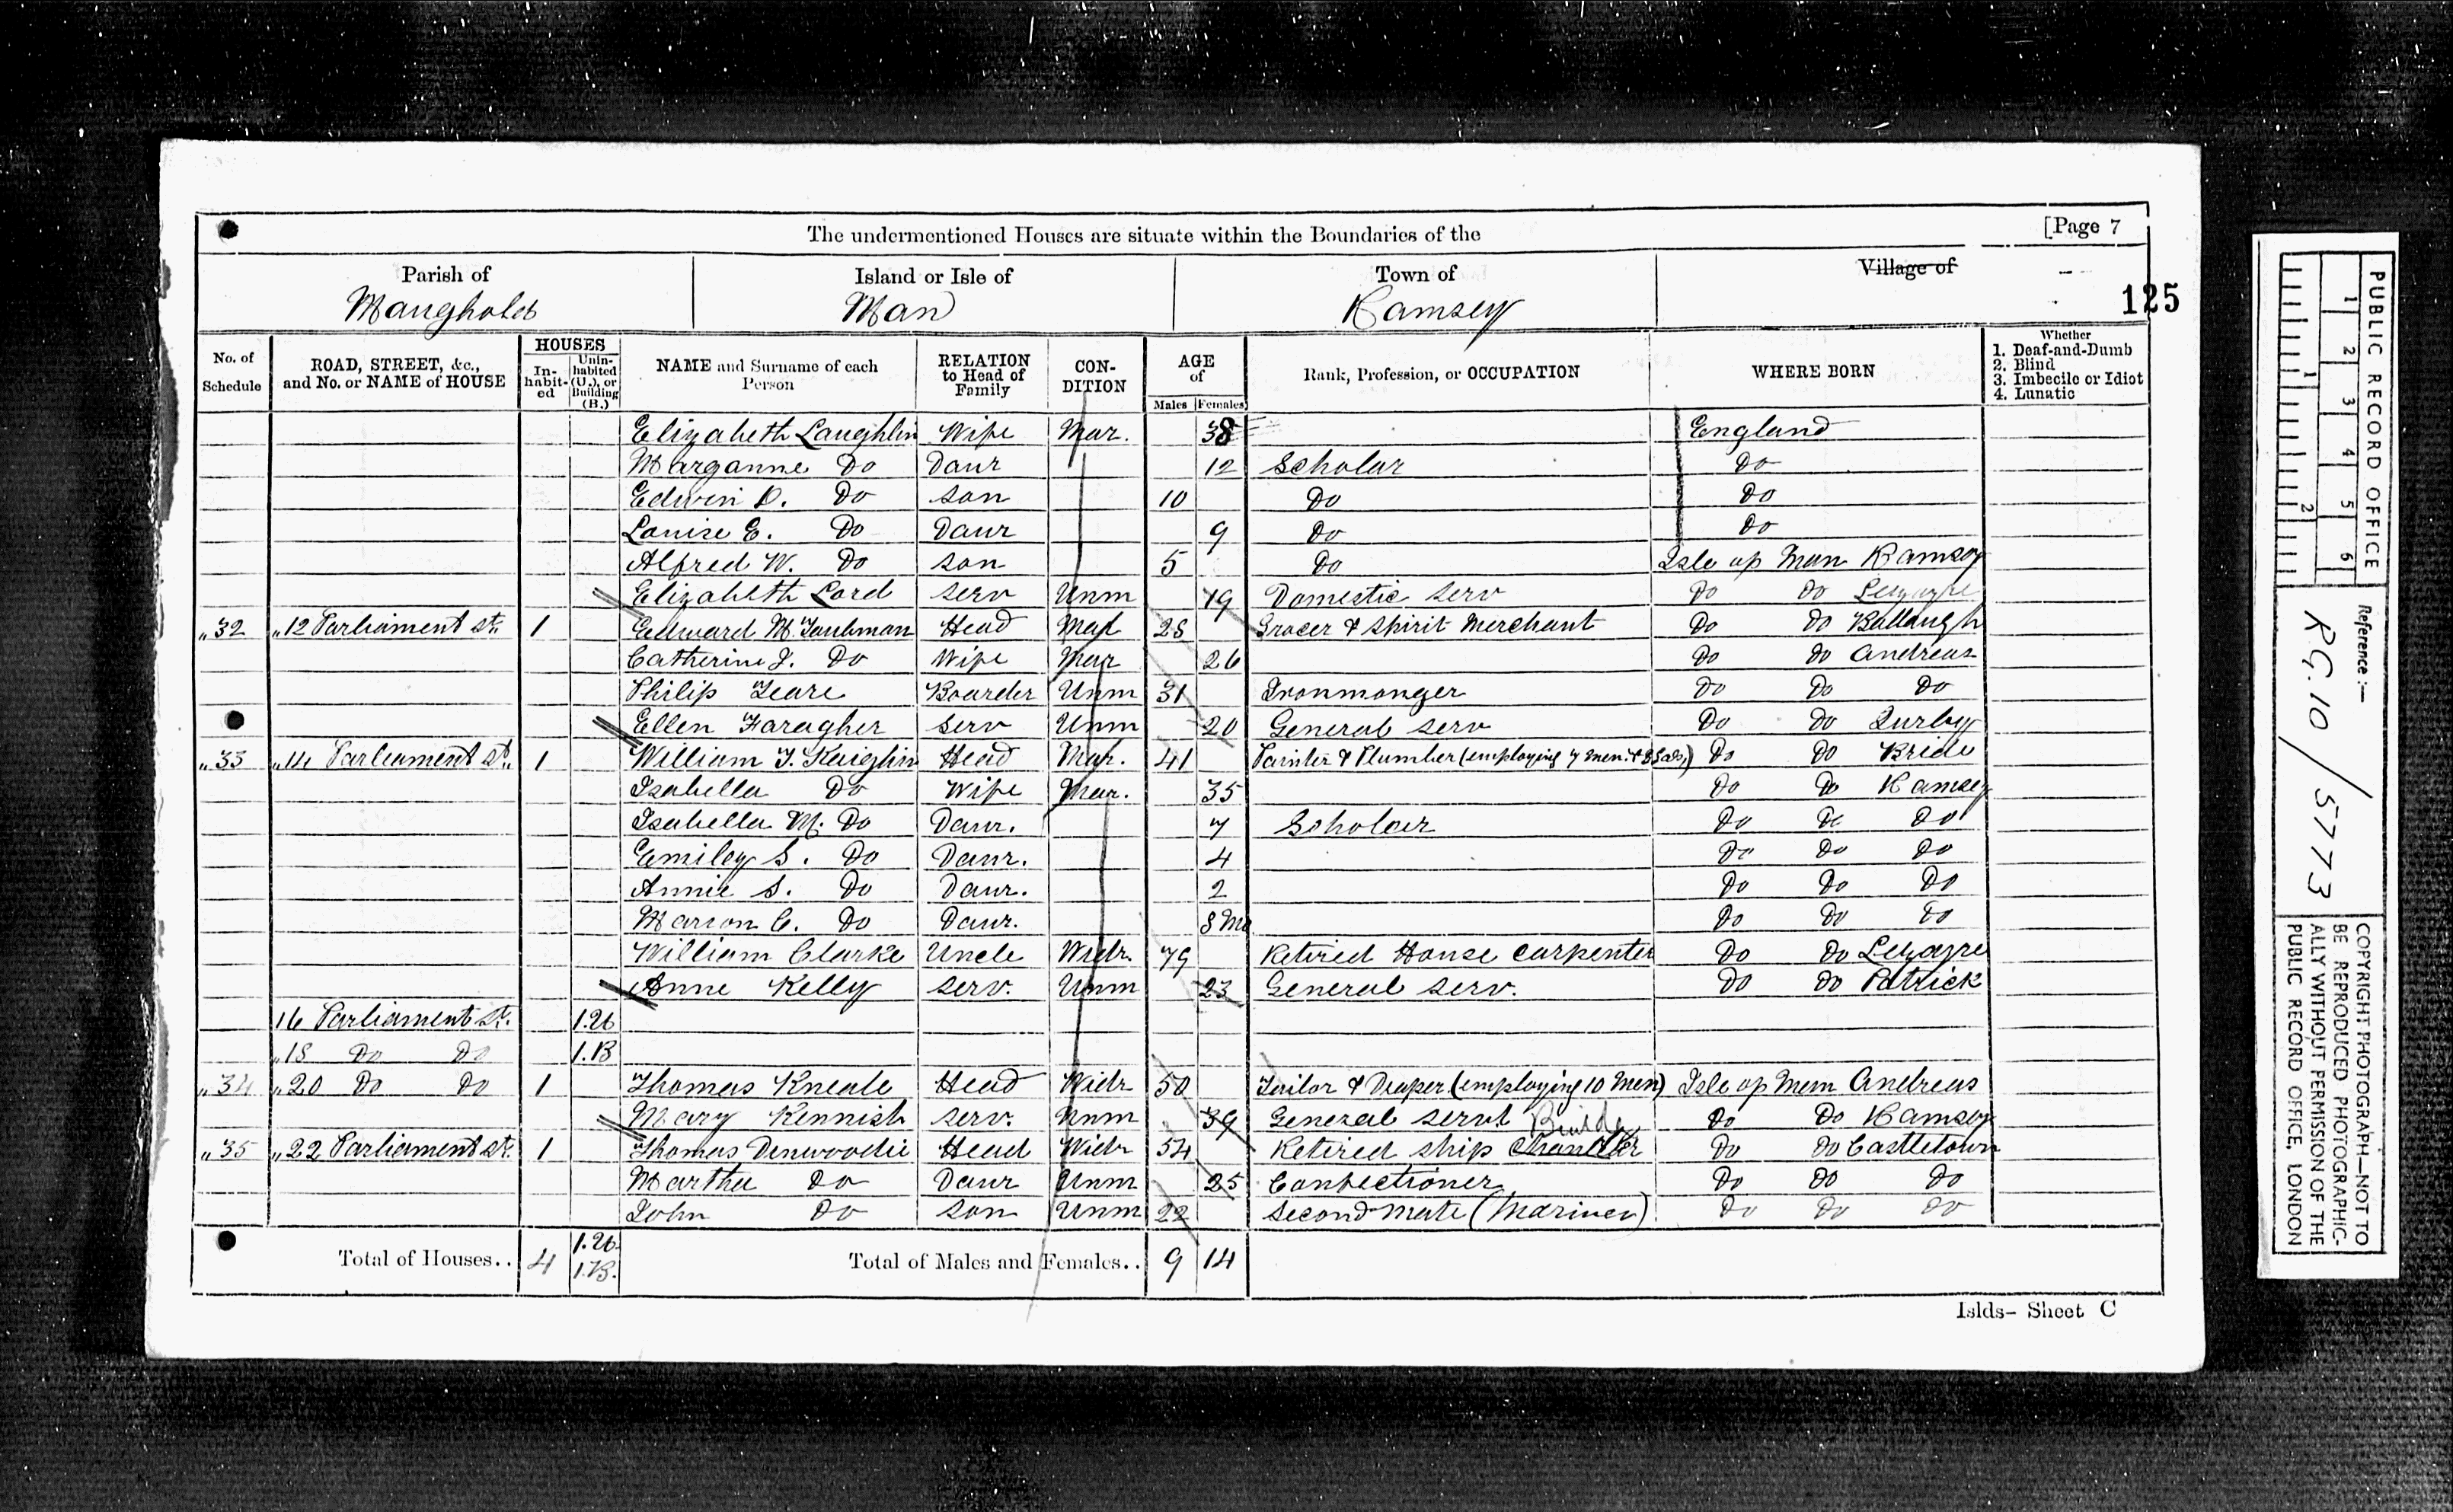 The undermentioned Houses are situate within the Boundaries of the
[Page 7
Parish of Maughold
Island or Isle of Man
Town of Ramsey
Village of
125
No. of Schedule
ROAD, STREET, &c., and No. or NAME of HOUSE
HOUSES
In-habit-ed
Unin-habited (U.), or Building (B.)
NAME and Surname of each Person
RELATION to Head of Family
CON-DITION
AGE of
Males
Females
Rank, Profession, or OCCUPATION
WHERE BORN
Whether
1. Deaf-and-Dumb
2. Blind
3. Imbecile or Idiot
4. Lunatic
Elizabeth Laughlin Wife Mar. 38 England
Marganne Do Daur 12 Scholar Do
Edwin D. Do son 10 Do Do
Louise E. Do Daur 9 Do Do
Alfred W. Do son 5 Do Isle of Man Ramsey
Elizabeth Lord serv Unm 19 Domestic serv Do Do Lezayre
„32 „12 Parliament st. 1 Edward M. Taubman Head Mar 28 Grocer & Spirit Merchant Do Do Ballaugh
Catherine J. Do Wife Mar 26 Do Do Andreas
Philip Teare Boarder Unm 31 Ironmonger Do Do Do
Ellen Faragher serv Unm 20 General serv Do Do Jurby
„33 „14 Parliament st. 1 William T. Keighin Head Mar. 41 Painter & Plumber (employing 7 men & Do Do Bride
Isabella Do Wife Mar. 35 Do Do Ramsey
Isabella M. Do Daur. 7 Scholar Do Do Do
Emiley S. Do Daur. 4 Do Do Do
Annie S. Do Daur. 2 Do Do Do
Marion C. Do Daur. 8 Mo Do Do Do
William Clarke Uncle Widr. 79 Retired House Carpenter Do Do Lezayre
Anne Kelly serv. Unm 23 General serv. Do Do Patrick
16 Parliament st. 1.U
„18 Do Do 1.B
„34 „20 Do Do 1 Thomas Kneale Head Widr 50 Tailor & Draper (employing 10 Men) Isle of Man Andreas
Mary Kennish serv. Unm 39 General servt Do Do Ramsey
Builder
„35 „22 Parliament st. 1 Thomas Dinwoodie Head Widr 54 Retired ship Chandler Do Do Castletown
Martha Do Daur Unm 25 Confectioner Do Do Do
John Do son Unm 22 Second Mate (Mariner) Do Do Do
Total of Houses.. 4 1.U. 1.B. Total of Males and Females.. 9 14
Islds- Sheet C
PUBLIC RECORD OFFICE
1 2 3 4 5 6
1 2
Reference :-
RG. 10 / 5773
COPYRIGHT PHOTOGRAPH—NOT TO
BE REPRODUCED PHOTOGRAPHIC-
ALLY WITHOUT PERMISSION OF THE
PUBLIC RECORD OFFICE, LONDON